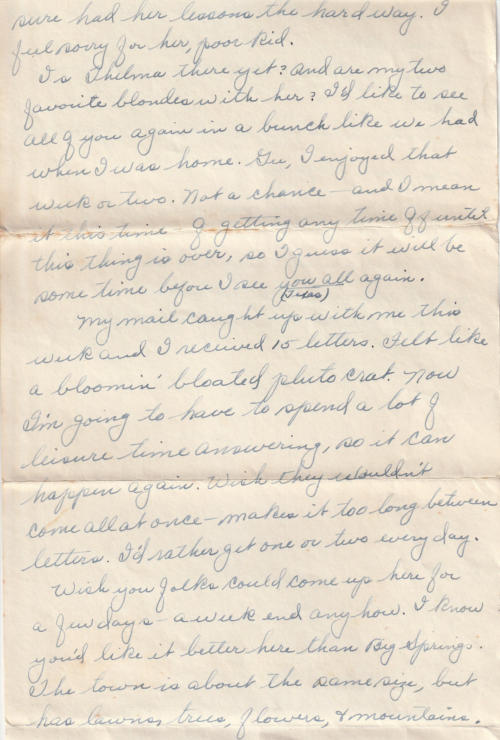 sure had her lessons the hard way. I
feel sorry for her, poor kid.
Is Thelma there yet? and are my two
favorite blondes with her? I'd like to see
all of you again in a bunch like we had
when I was home. Gee, I enjoyed that
week or two. Not a chance – and I mean
it this time of getting any time off until
this thing is over, so I guess it will be
some time before I see you all again.
(Texas)
My mail caught up with me this
week and I received 15 letters. Felt like
a bloomin' bloated pluto crat. Now
I'm going to have to spend a lot of
leisure time answering, so it can
happen again. Wish they wouldn't
come all at once – makes it too long between
letters. I'd rather get one or two every day.
Wish you folks could come up here for
a few days – a week end anyhow. I know
you'd like it better here than Big Springs.
The town is about the same size, but
has lawns, trees, flowers, & mountains.